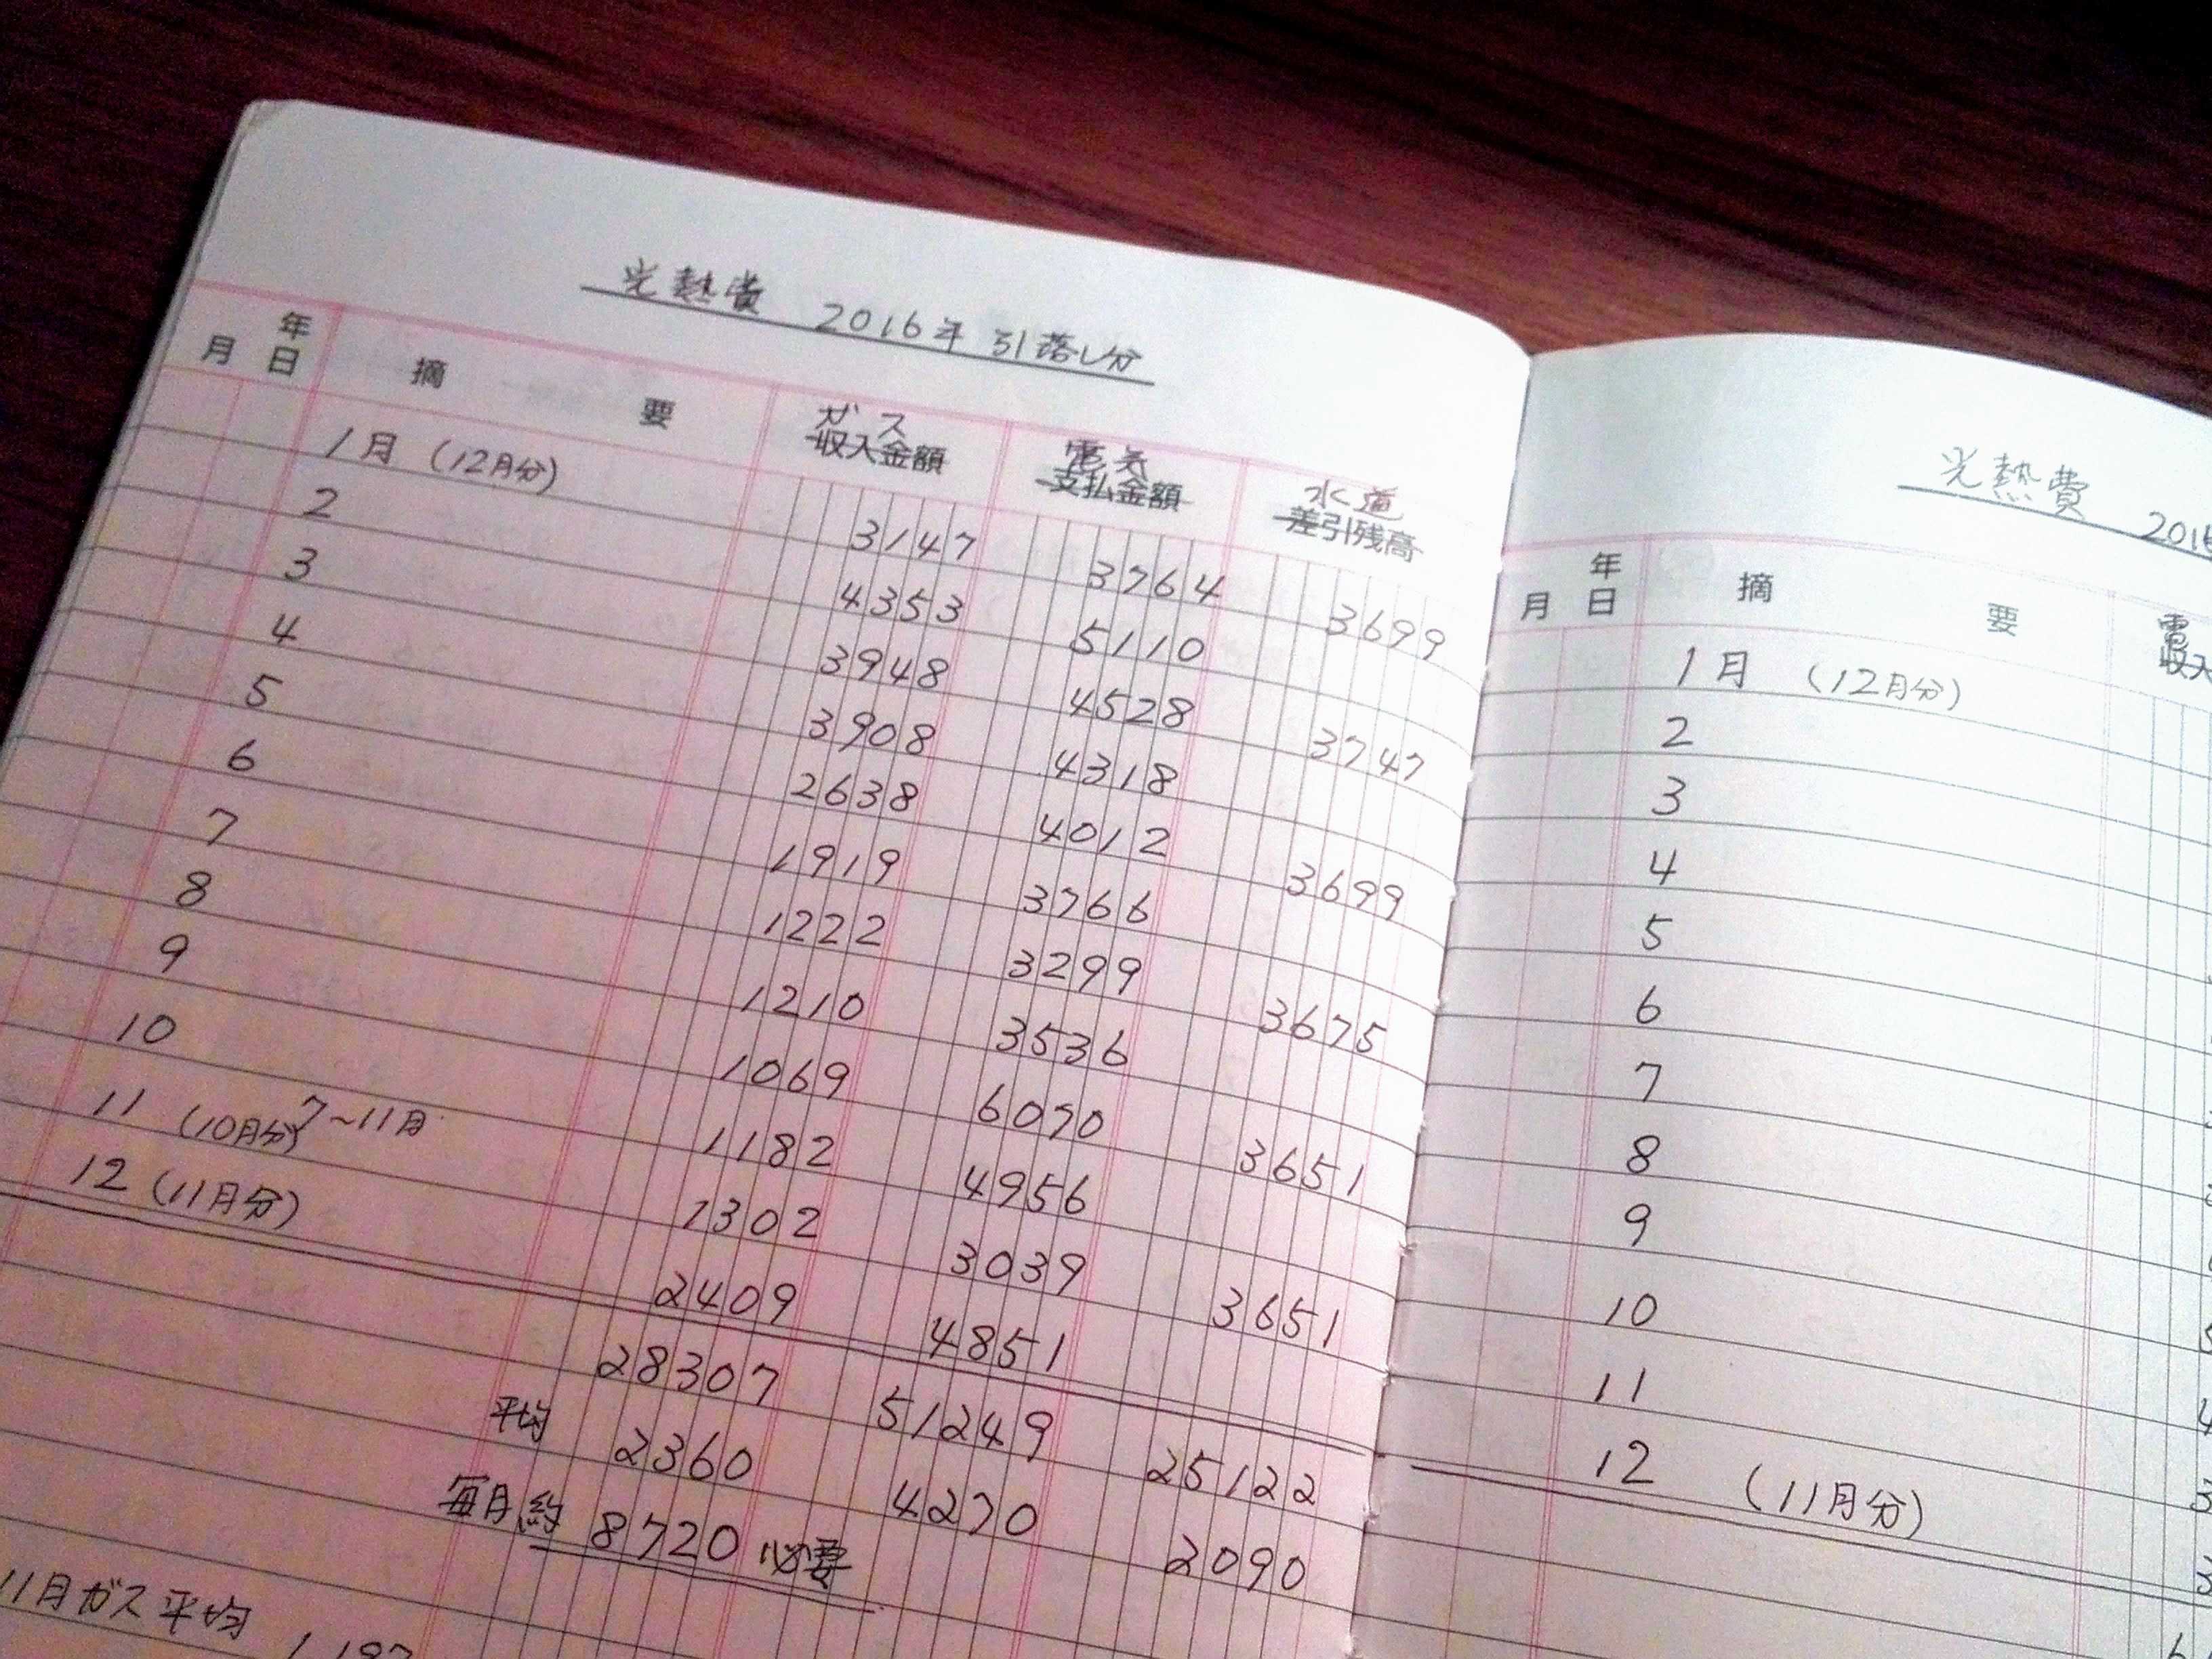 光熱費 2016年 引落し分
年
月 日 摘 要 ガス 電気 水道
収入金額 支払金額 差引残高
1月 (12月分) 3147 3764 3699
2 4353 5110
3 3948 4528 3747
4 3908 4318
5 2638 4012 3699
6 1919 3766
7 1222 3299 3675
8 1210 3536
9 1069 6070 3651
10 1182 4956
11 (10月分) 7~11月 1302 3039 3651
12 (11月分) 2409 4851
28307 51249 25122
平均 2360 4270 2090
毎月約 8720 必要
11月ガス平均
光熱費 2016
年
月 日 摘 要 電
収入
1月 (12月分)
2
3
4
5
6
7
8
9
10
11
12 (11月分)